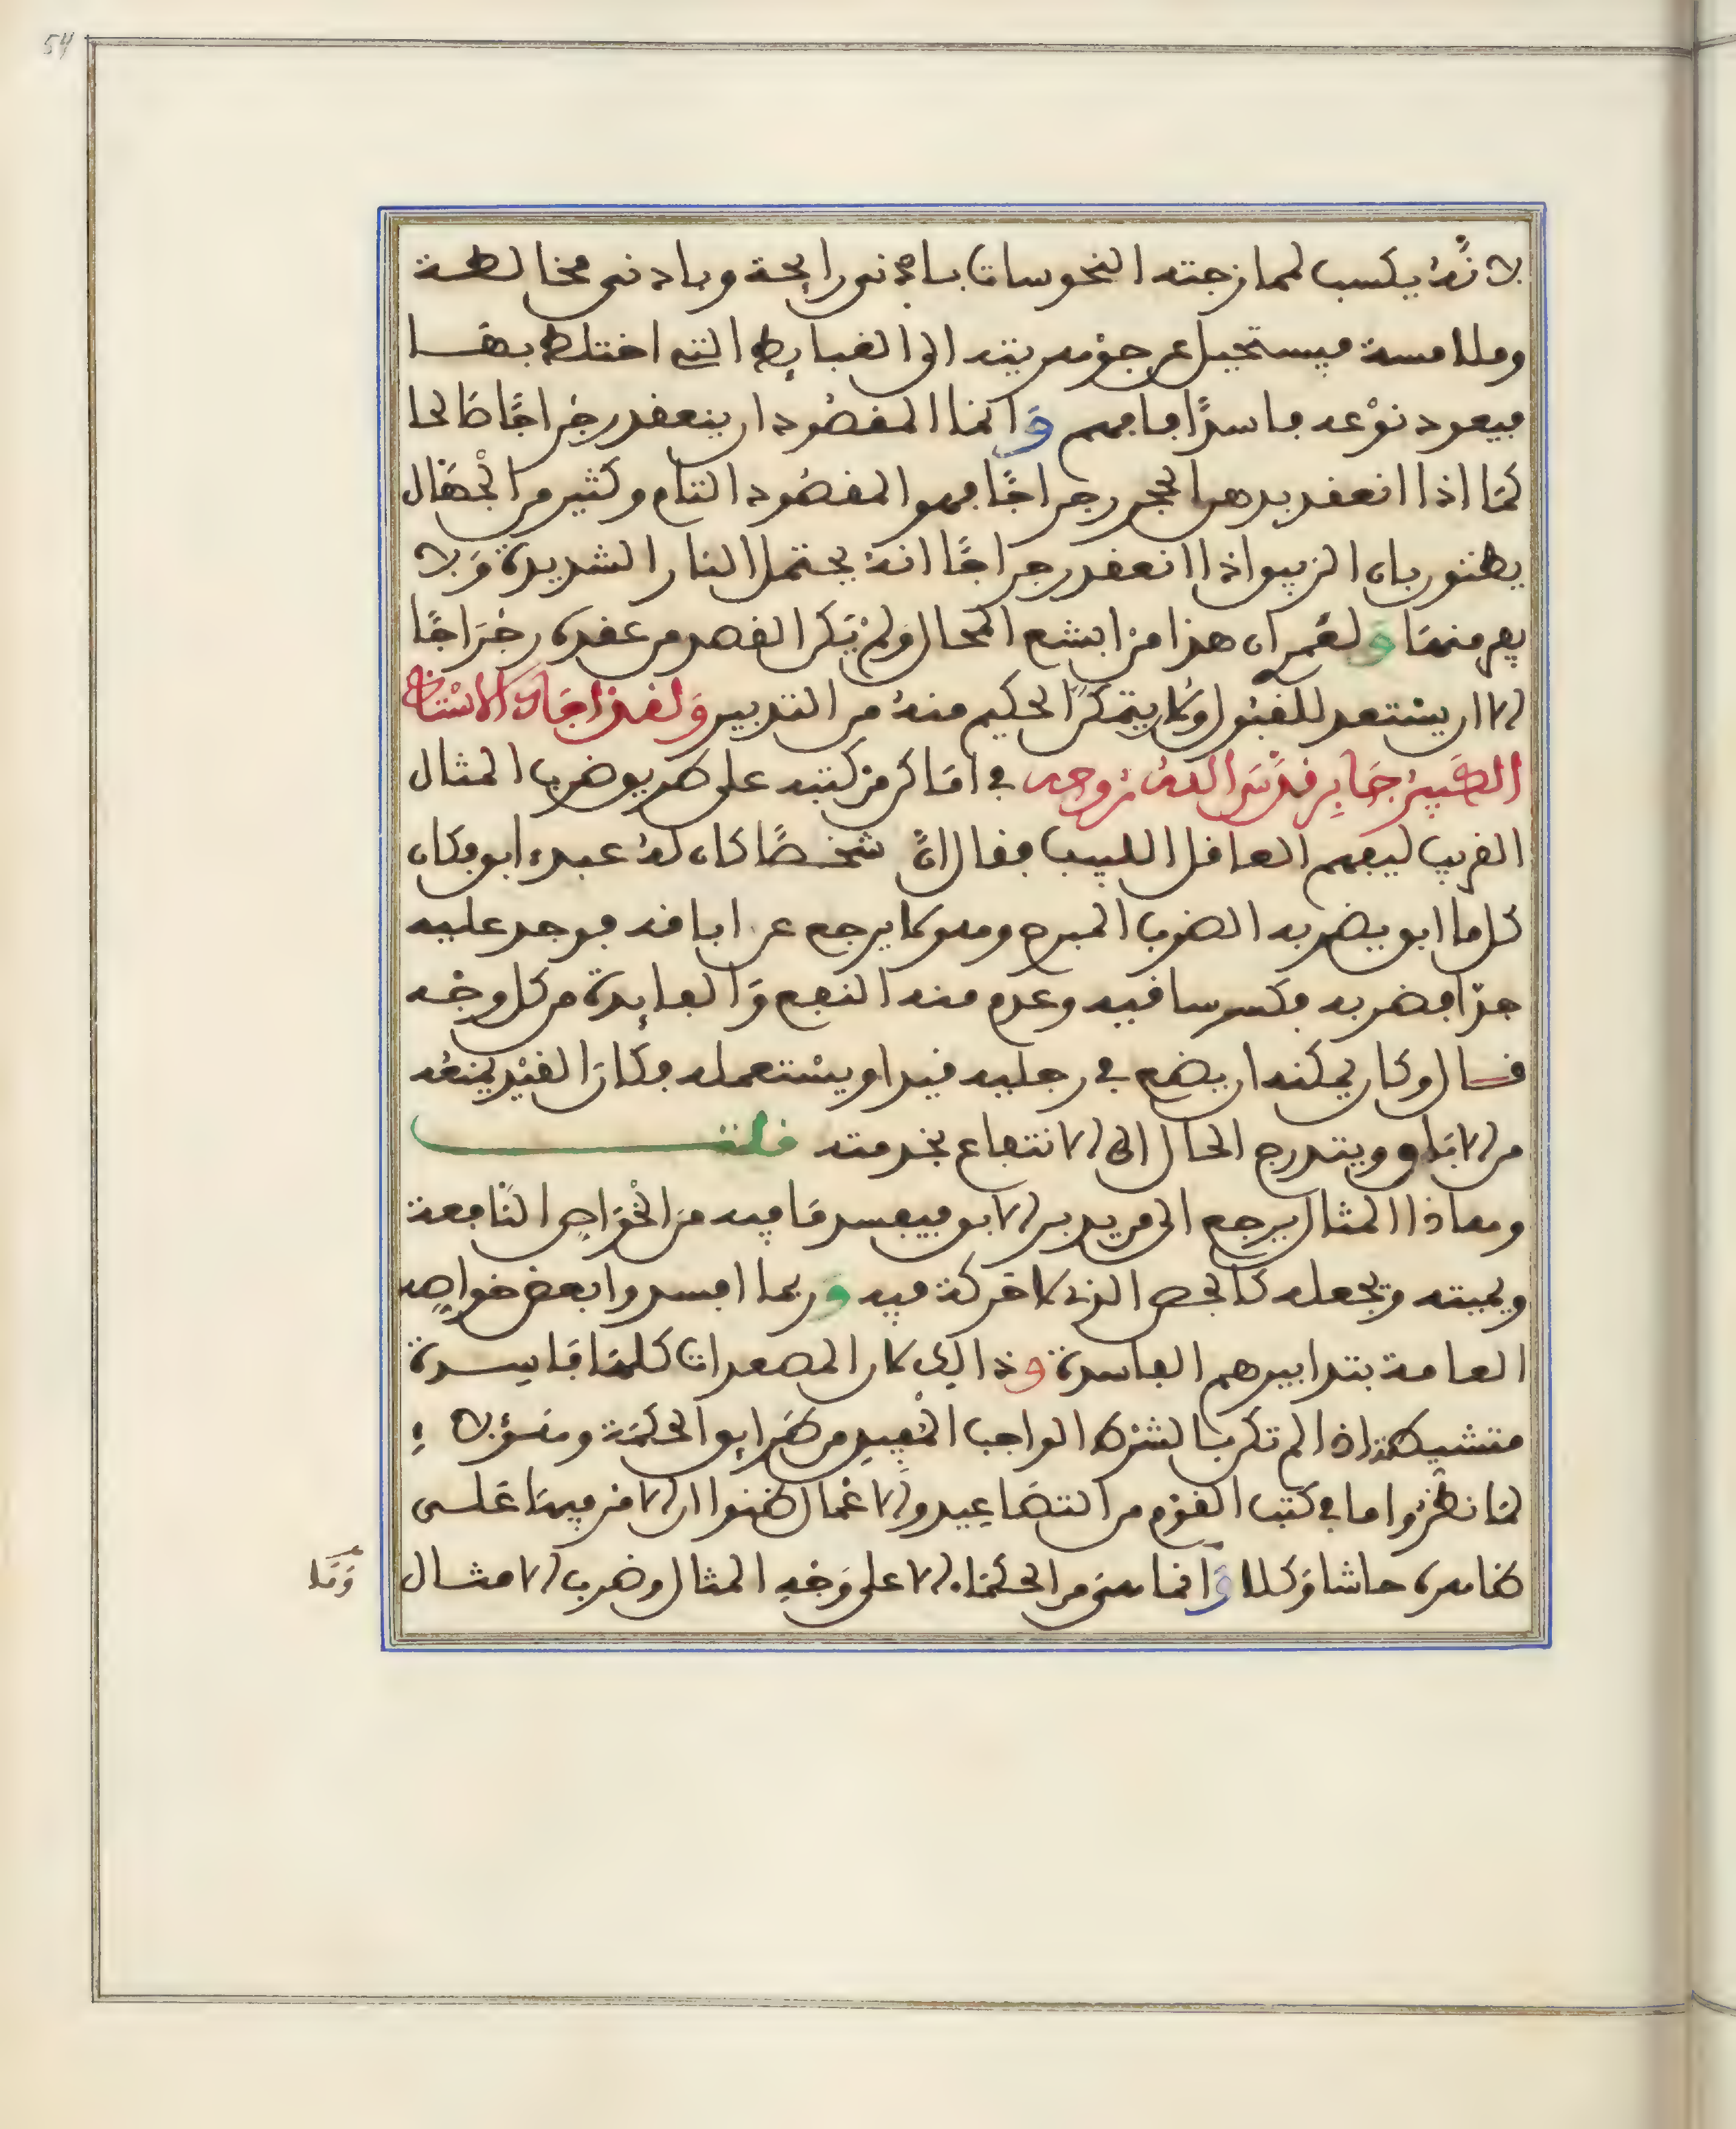 54
لانه يكسب لممازجته النحوسات بادنى رايحة وبادنى مخالطة
وملامسة فيستحيل عن جوهريته الى الغبايط التي اختلط بها
فيعود نوعه فاسدًا فافهم وَانما المقصُود ان ينعقد رجراجًا صَالحا
كمَا اذا انعقد بدهن الحجر رجراجًا فهو المقصُود التام وكثير من الجهَّال
يظنون بان الزيبق اذا انعقد رجراجًا انهُ يحتمل النار الشديدة وَلا
يفر منهَا وَلعَمر ان هذا من ابشع المحال وَلم يَكن القصد من عقده رجرَاجًا
الا ان يستعد للقبُول وَلان يتمكن الحكيم منهُ من التدبير وَلقد اجَاد الاستاذ
الكَبير جَابر قدَّسَ اللهُ رُوحه في امَاكن من كتبه على طريق ضرب المثال
القريب ليفهم العاقل اللبيب فقال انَّ شخصًا كان لهُ عبد ابق وكان
كل ما ابق يضربه الضرب المبرح وهو لا يرجع عن اباقه فوجد عليه
جدّا فضربه فكسر ساقيه وعدم منه النفع وَالفايدة من كل وجْه
قال وكان يمكنه ان يضع في رجليه قيدا ويستعمله فكانَ القيْد يمنعُه
من الابَاق ويتدرج الحال الى الانتفاع بخدمته قلت
وهاذا المثال يرجع الى من يدبر الابق فيفسد مَا فيه منَ الخوَاص النَّافعة
ويميته ويجعله كالجص الذي لا حركة فيه وَربما افسدوا بعض خواصه
العامة بتدابيرهم الفاسدة وذالك لان المصعدات كلهَا فَاسدة
متشيطة اذا لم تكن بالشرط الواجب المُفيدِ من طرَايق الحكمَة وهَؤلا
لمَا نظرُوا ما في كتب القوْم من التصَاعِيد والاعْمال ظنوا ان الامر فيهَا عَلى
ظاهره حاشا وَكلا وَانما هي من الحكمَاء الا على وَجْهِ المثال وضرب الامثال
وَمَلا